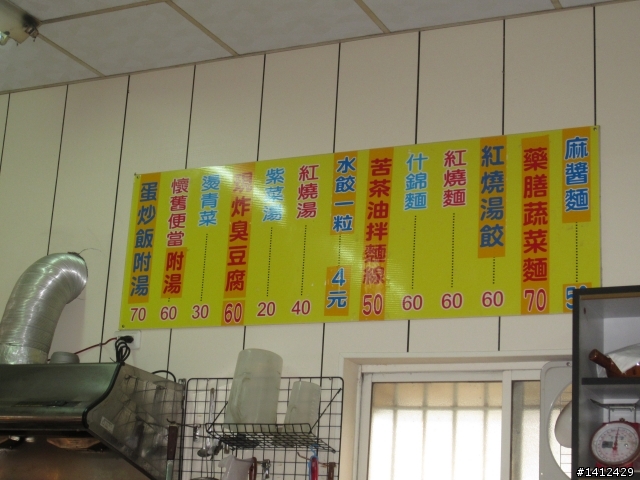 麻醬麵 50
藥膳蔬菜麵 70
紅燒湯餃 60
紅燒麵 60
什錦麵 60
苦茶油拌麵線 50
水餃一粒 4元
紅燒湯 40
紫菜湯 20
現炸臭豆腐 60
燙青菜 30
懷舊便當附湯 60
蛋炒飯附湯 70
#1412429